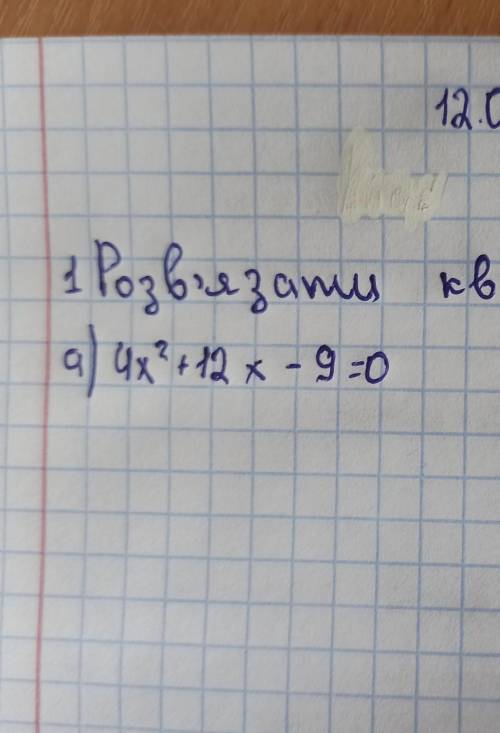 12.0
1 Розв'язати кв
а) 4x² + 12x - 9 = 0